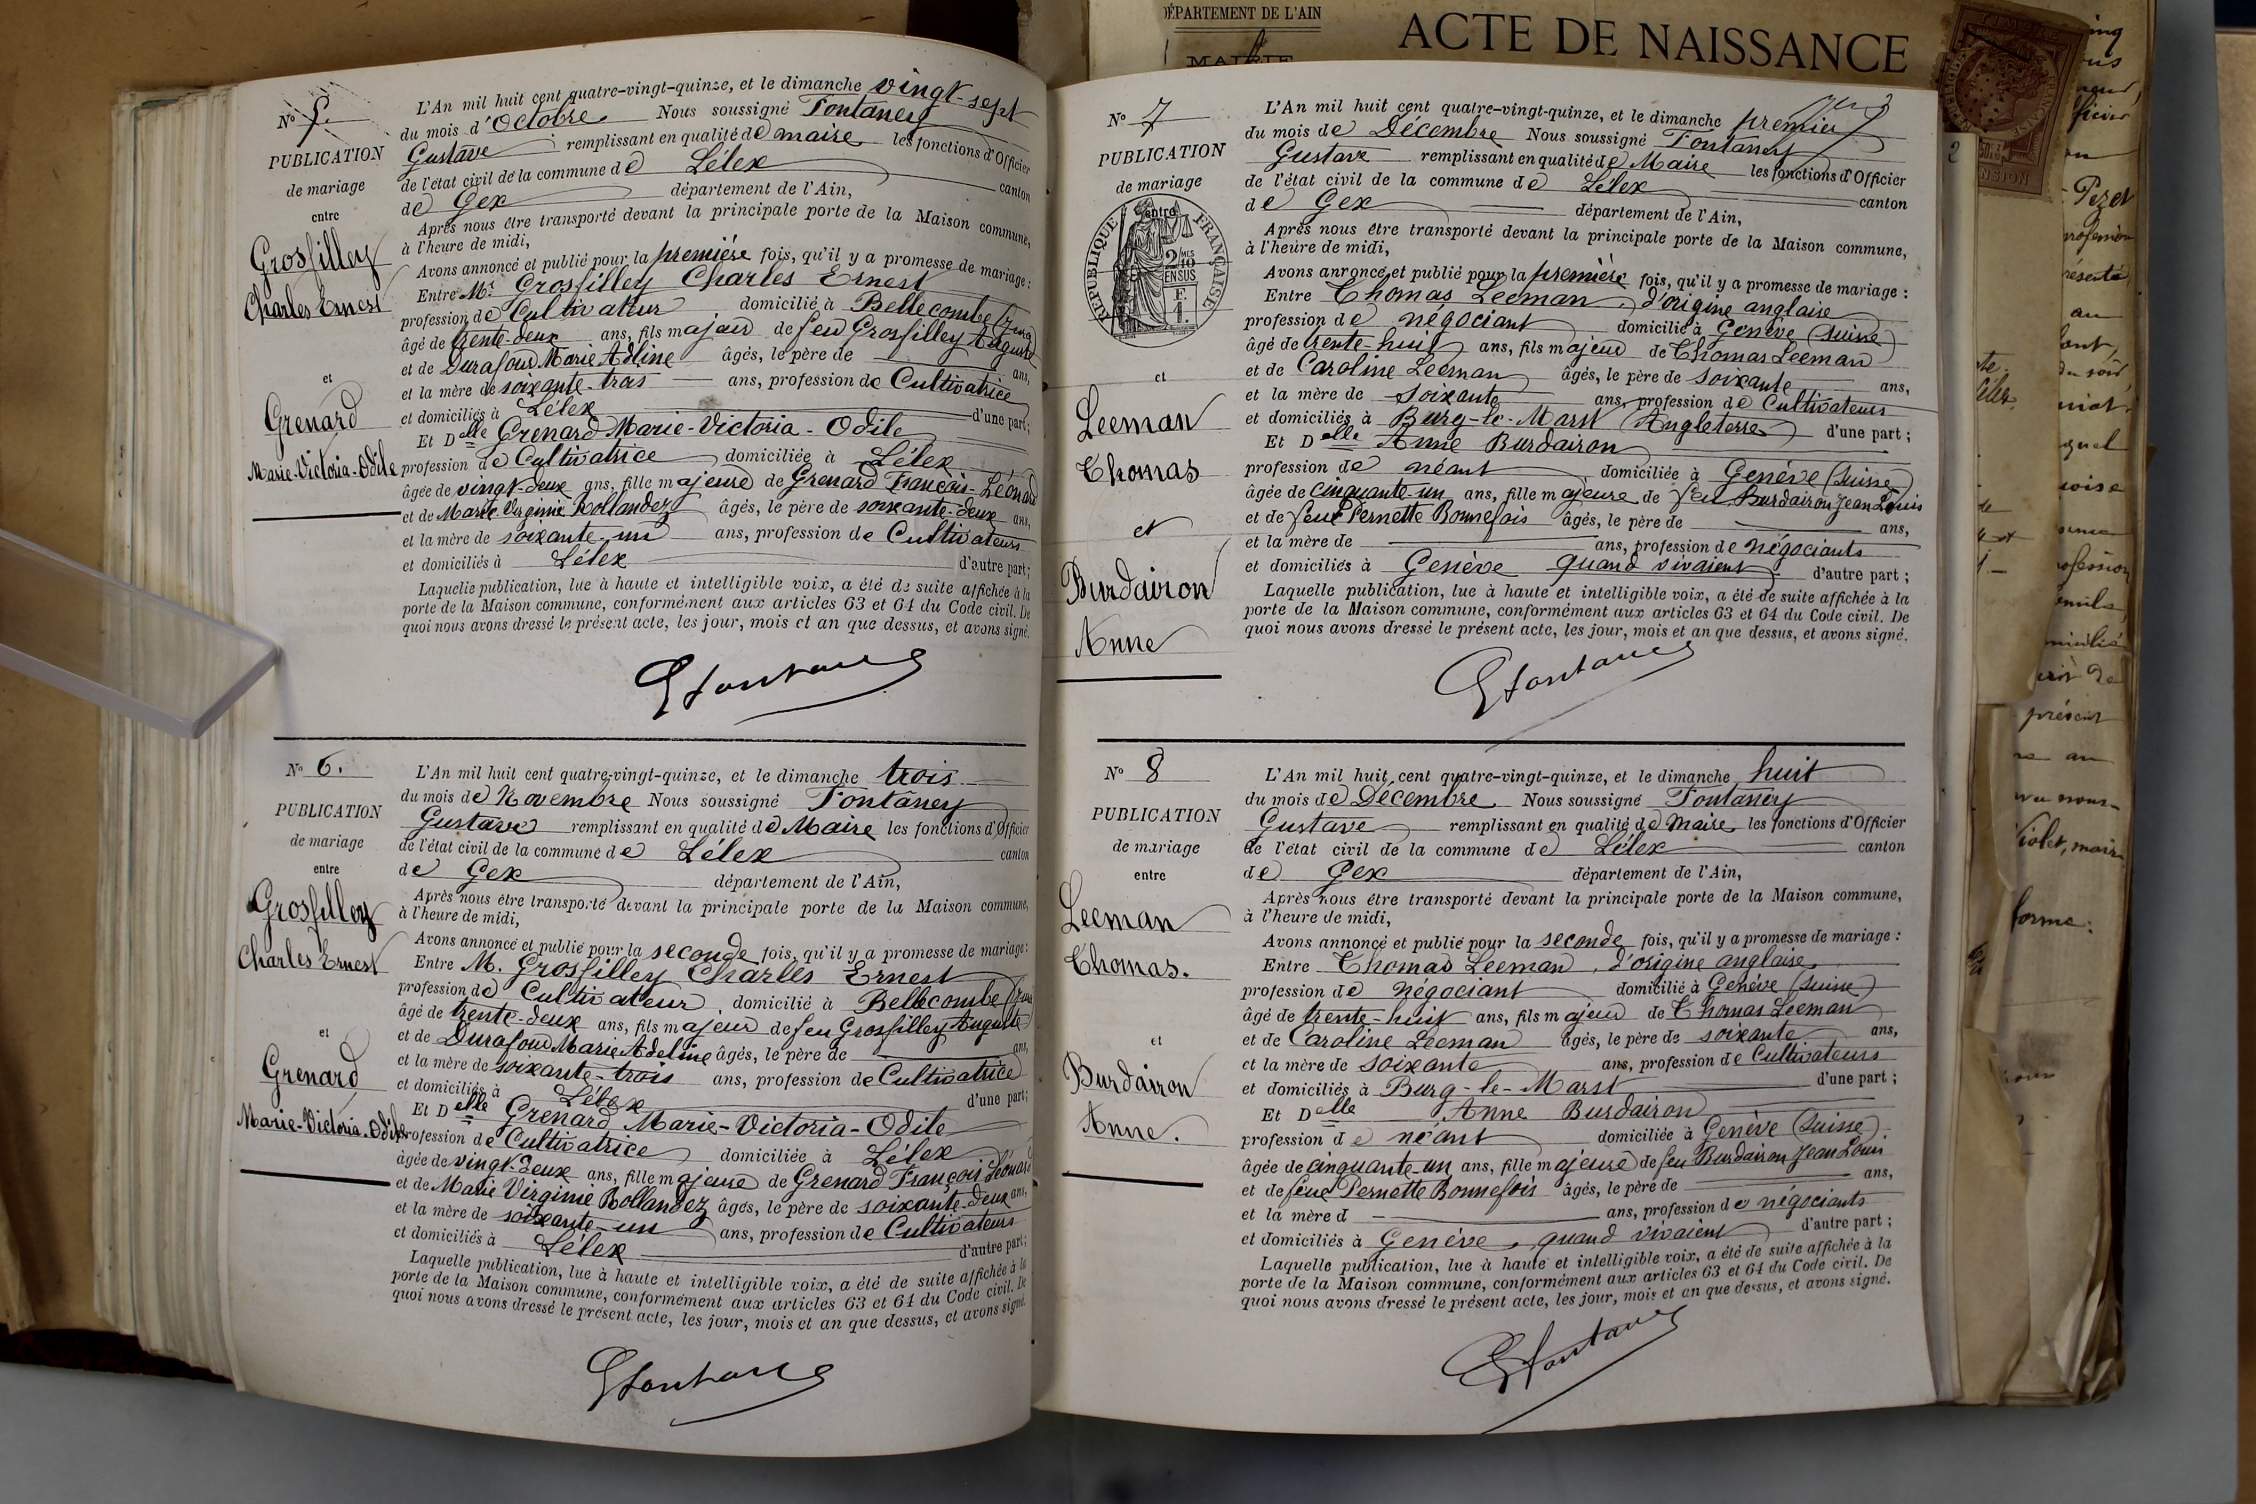 N° 5.
PUBLICATION
de mariage
entre
Grosfilley
Charles Ernest
et
Grenard
Marie-Victoria-Odile
L'An mil huit cent quatre-vingt-quinze, et le dimanche vingt-sept
du mois d'Octobre Nous soussigné Fontaney
Gustave remplissant en qualité de maire les fonctions d'Officier
de l'état civil de la commune de Lélex canton
de Gex département de l'Ain,
Après nous être transporté devant la principale porte de la Maison commune,
à l'heure de midi,
Avons annoncé et publié pour la première fois, qu'il y a promesse de mariage :
Entre Mr. Grosfilley Charles Ernest
profession de Cultivateur domicilié à Bellecombe (Jura)
âgé de trente-deux ans, fils majeur de feu Grosfilley Auguste
et de Durafour Marie Adline âgés, le père de ans,
et la mère de soixante-trois ans, profession de Cultivatrice
et domiciliés à Lélex d'une part;
Et Delle Grenard Marie-Victoria-Odile
profession de Cultivatrice domiciliée à Lélex
âgée de vingt-deux ans, fille majeure de Grenard François-Léonard
et de Marie Virginie Rollandez âgés, le père de soixante-deux ans,
et la mère de soixante-un ans, profession de Cultivateurs
et domiciliés à Lélex d'autre part;
Laquelle publication, lue à haute et intelligible voix, a été de suite affichée à la
porte de la Maison commune, conformément aux articles 63 et 64 du Code civil. De
quoi nous avons dressé le présent acte, les jour, mois et an que dessus, et avons signé.
G Fontaney
N° 6.
PUBLICATION
de mariage
entre
Grosfilley
Charles Ernest
et
Grenard
Marie-Victoria-Odile
L'An mil huit cent quatre-vingt-quinze, et le dimanche trois
du mois de Novembre Nous soussigné Fontaney
Gustave remplissant en qualité de Maire les fonctions d'Officier
de l'état civil de la commune de Lélex canton
de Gex département de l'Ain,
Après nous être transporté devant la principale porte de la Maison commune,
à l'heure de midi,
Avons annoncé et publié pour la seconde fois, qu'il y a promesse de mariage:
Entre M. Grosfilley Charles Ernest
profession de Cultivateur domicilié à Bellecombe (Jura
âgé de trente-deux ans, fils majeur de feu Grosfilley Auguste
et de Durafour Marie Adeline âgés, le père de ans,
et la mère de soixante-trois ans, profession de Cultivatrice
et domiciliés à Lélex d'une part;
Et Delle Grenard Marie-Victoria-Odile
profession de Cultivatrice domiciliée à Lélex
âgée de vingt-deux ans, fille majeure de Grenard François Léonard
et de Marie Virginie Rollandez âgés, le père de soixante-deux ans,
et la mère de soixante-un ans, profession de Cultivateurs
et domiciliés à Lélex d'autre part;
Laquelle publication, lue à haute et intelligible voix, a été de suite affichée à la
porte de la Maison commune, conformément aux articles 63 et 64 du Code civil. De
quoi nous avons dressé le présent acte, les jour, mois et an que dessus, et avons signé.
G Fontaney
DÉPARTEMENT DE L'AIN
MAIRIE
ACTE DE NAISSANCE
N° 7
PUBLICATION
de mariage
entre
RÉPUBLIQUE FRANÇAISE
2/10 MES
EN SUS
F.
1.
et
Leeman
Thomas
et
Burdairon
Anne
L'An mil huit cent quatre-vingt-quinze, et le dimanche premier
du mois de Décembre Nous soussigné Fontaney
Gustave remplissant en qualité de Maire les fonctions d'Officier
de l'état civil de la commune de Lélex canton
de Gex département de l'Ain,
Après nous être transporté devant la principale porte de la Maison commune,
à l'heure de midi,
Avons annoncé et publié pour la première fois, qu'il y a promesse de mariage :
Entre Thomas Leeman, d'origine anglaise
profession de négociant domicilié à Genève (Suisse)
âgé de trente-huit ans, fils majeur de Thomas Leeman
et de Caroline Leeman âgés, le père de soixante ans,
et la mère de soixante ans, profession de Cultivateurs
et domiciliés à Burg-le-Marst (Angleterre) d'une part ;
Et Delle Anne Burdairon
profession de néant domiciliée à Genève (Suisse)
âgée de cinquante-un ans, fille majeure de feu Burdairon Jean Louis
et de feue Pernette Bonnefois âgés, le père de ans,
et la mère de ans, profession de négociants
et domiciliés à Genève quand vivaient d'autre part ;
Laquelle publication, lue à haute et intelligible voix, a été de suite affichée à la
porte de la Maison commune, conformément aux articles 63 et 64 du Code civil. De
quoi nous avons dressé le présent acte, les jour, mois et an que dessus, et avons signé.
G Fontaney
N° 8
PUBLICATION
de mariage
entre
Leeman
Thomas.
et
Burdairon
Anne.
L'An mil huit cent quatre-vingt-quinze, et le dimanche huit
du mois de Décembre Nous soussigné Fontaney
Gustave remplissant en qualité de maire les fonctions d'Officier
de l'état civil de la commune de Lélex canton
de Gex département de l'Ain,
Après nous être transporté devant la principale porte de la Maison commune,
à l'heure de midi,
Avons annoncé et publié pour la seconde fois, qu'il y a promesse de mariage :
Entre Thomas Leeman, d'origine anglaise
profession de négociant domicilié à Genève (Suisse)
âgé de trente-huit ans, fils majeur de Thomas Leeman
et de Caroline Leeman âgés, le père de soixante ans,
et la mère de soixante ans, profession de Cultivateurs
et domiciliés à Burg-le-Marst d'une part ;
Et Delle Anne Burdairon
profession de néant domiciliée à Genève (Suisse)
âgée de cinquante-un ans, fille majeure de feu Burdairon Jean Louis
et de feue Pernette Bonnefois âgés, le père de ans,
et la mère d ans, profession de négociants
et domiciliés à Genève, quand vivaient d'autre part ;
Laquelle publication, lue à haute et intelligible voix, a été de suite affichée à la
porte de la Maison commune, conformément aux articles 63 et 64 du Code civil. De
quoi nous avons dressé le présent acte, les jour, mois et an que dessus, et avons signé.
G Fontaney
2
Pezet
profession
au
du soir,
quel
profession
présent
au
Violet, maire
forme: